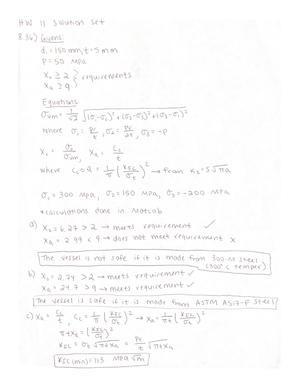 HW 11 Solution Set
8.36) Givens:
di = 150 mm, t = 5 mm
P = 50 MPa
Xo ≥ 2 } requirements
Xa ≥ 9
Equations:
σvm = 1/√2 √((σ1-σ2)² + (σ2-σ3)² + (σ3-σ1)²
where σ1 = Pr/t, σ2 = Pr/2t, σ3 = -P
Xo = σo/σvm, Xa = Cc/t
where Cc = 1/π (KIC/σt)² → from KI = S√πa
σ1 = 300 MPa, σ2 = 150 MPa, σ3 = -200 MPa
*calculations done in MatLab
a) Xo = 6.27 > 2 → meets requirement ✓
Xa = 2.99 < 9 → does not meet requirement X
The vessel is not safe if it is made from 300-M steel
(300° temper)
b) Xo = 2.74 > 2 → meets requirement ✓
Xa = 24.7 > 9 → meets requirement ✓
The vessel is safe if it is made from ASTM A517-F steel
c) Xa = Cc/t, Cc = 1/π (KIC/σt)² → Xa = 1/πt (KIC/σt)²
πtXa = (KIC/σt)²
KIC = σt √πtXa = Pr/t √πtXa
KIC(min) = 113 MPa√m